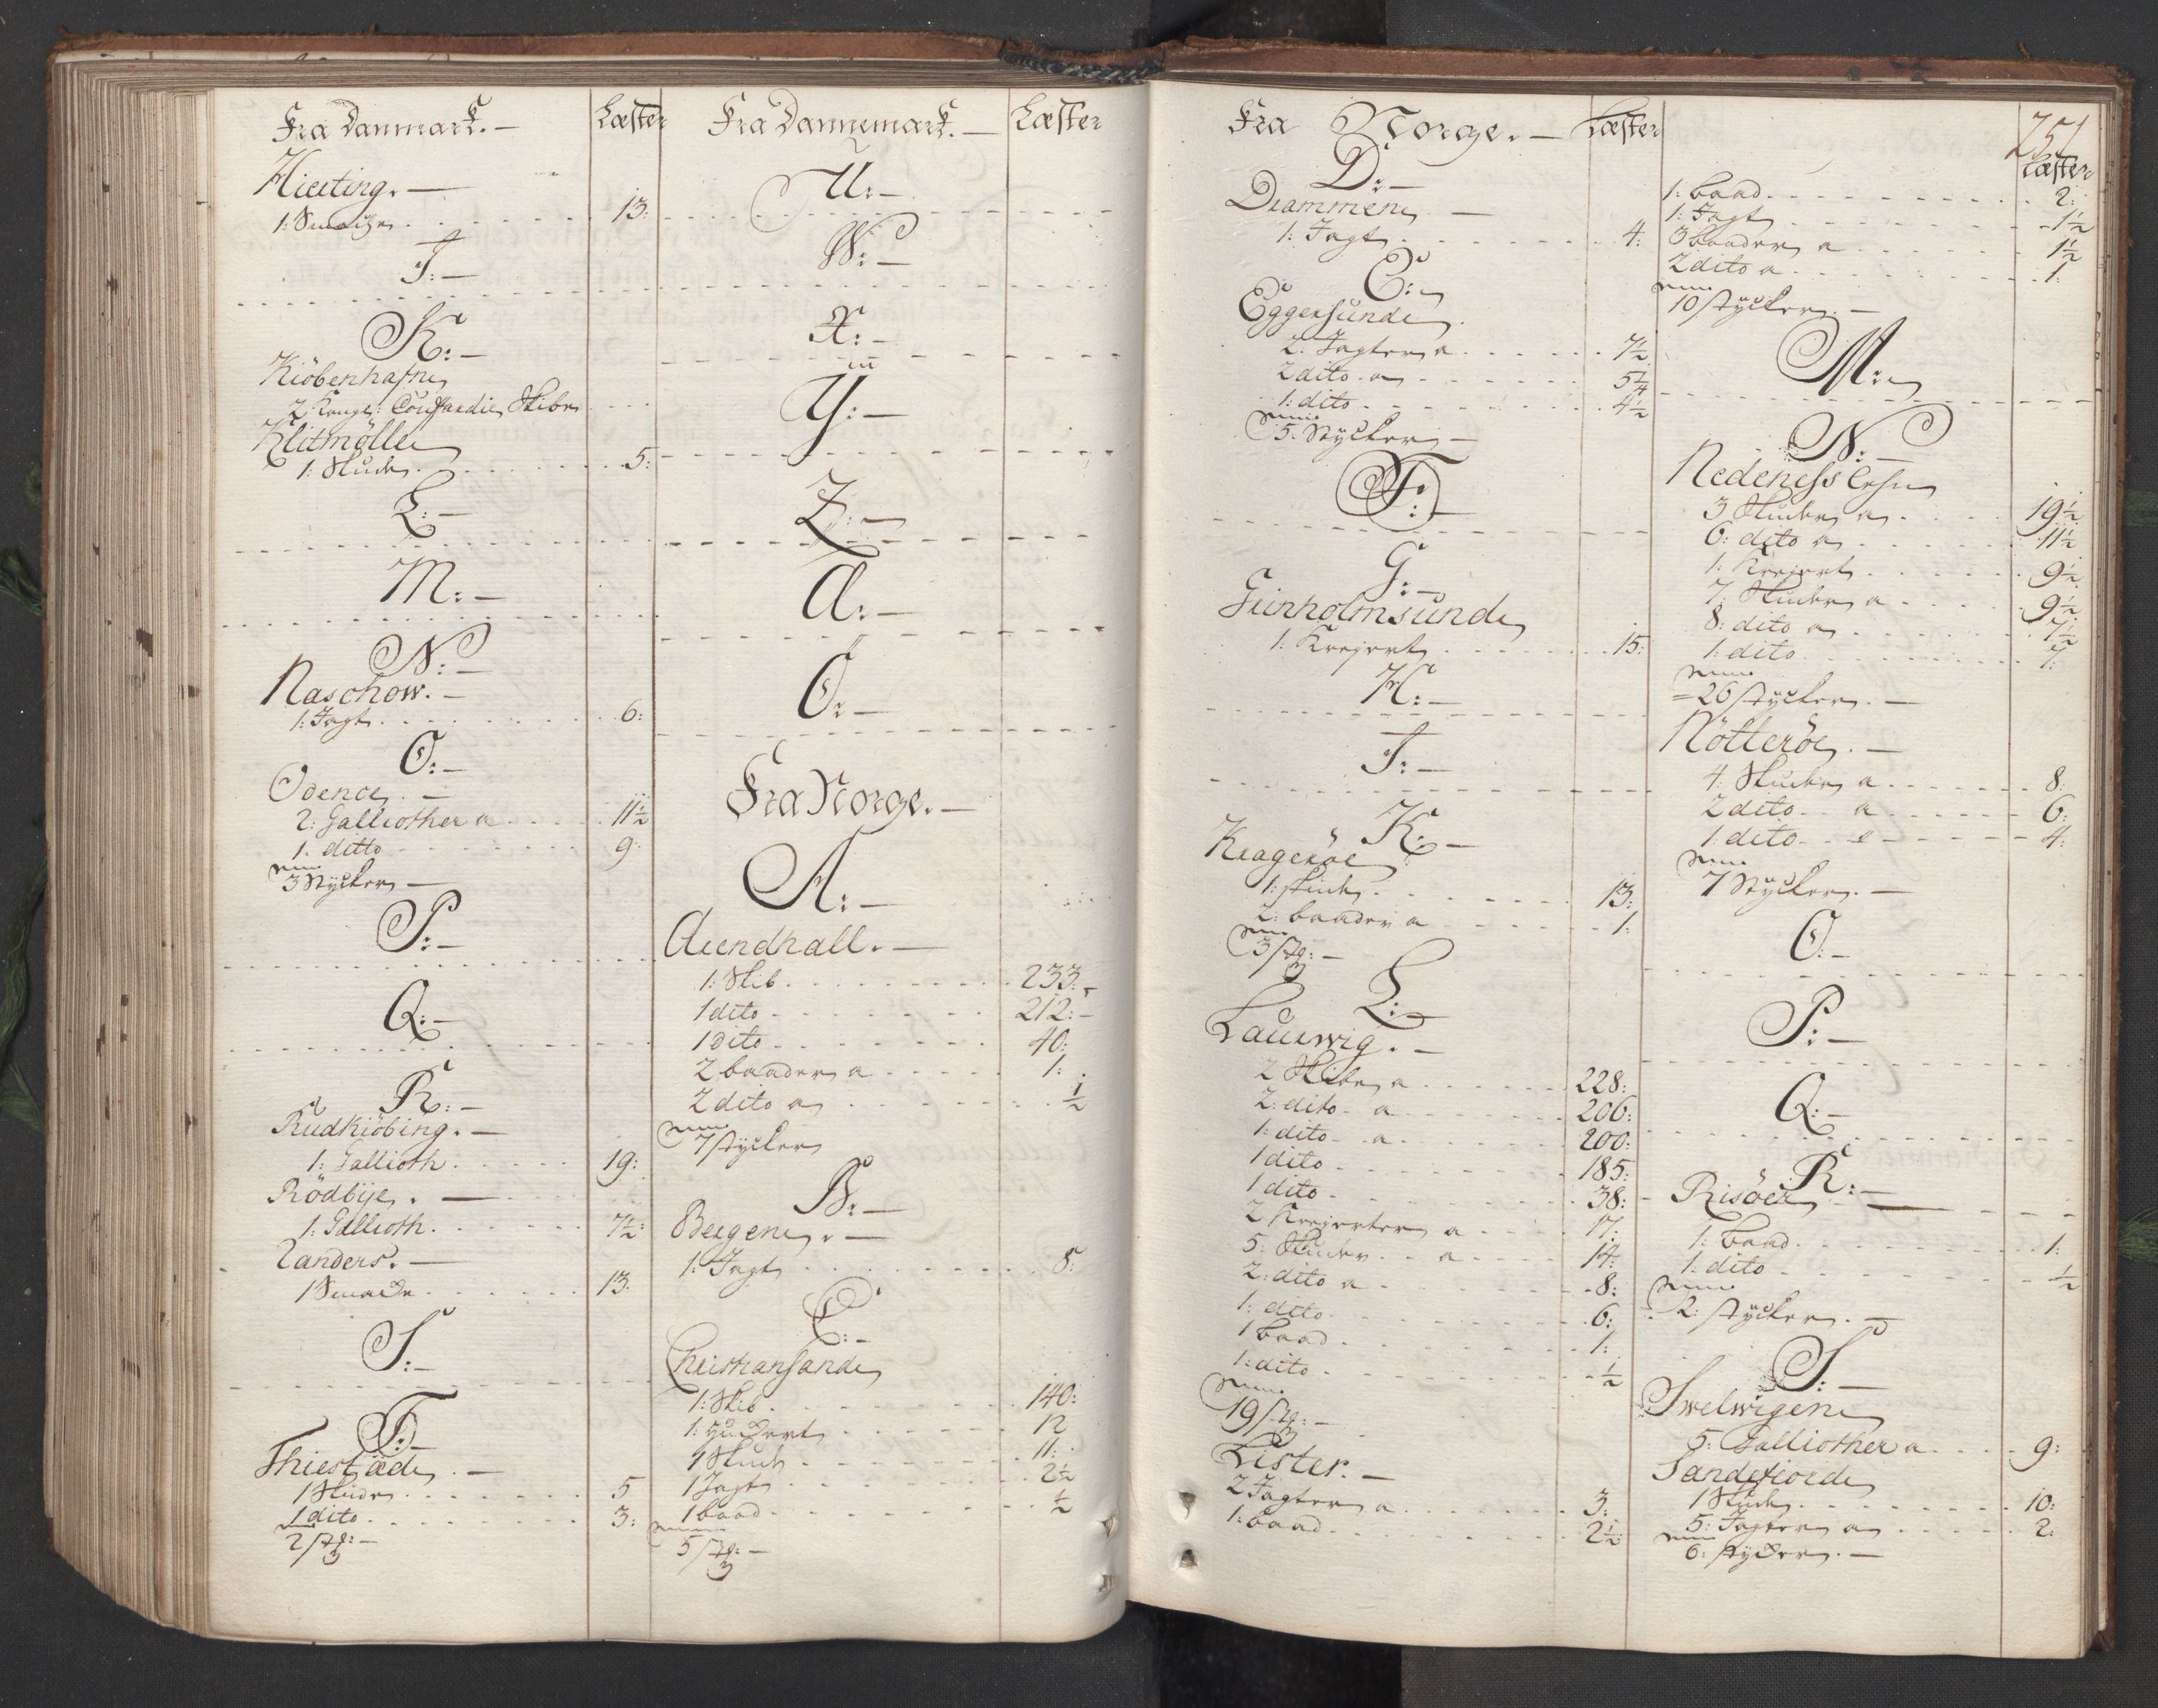 Fra Danmark. — Læster
Hierting. —
1: Smakke 13:
I: —
K: —
Kiöbenhafn
2 Kongl: Coufardie Skibe
Klitmölle
1: Skude 5:
L: —
M: —
N: —
Naschow. —
1: Jagt 6:
O: —
Odence. —
2: Galliother a 11½
1: ditto 9:
3 Stycker —
P: —
Q: —
R: —
Rudkiöbing. —
1: Gallioth 19:
Rödbye. —
1: Gallioth 7½:
Randers. —
1 Smacke 13:
S: —
T: —
Thiestæd. —
1 Skude 5
1 dito 3:
2 st: —
Fra Dannemark. — Læster
U: —
W: —
X: —
Y: —
Z: —
A: —
O: —
Fra Norge. —
A: —
Arendhall. —
1: Skib 233: —
1 dito 212: —
1 dito 40:
2 baader a 1:
2 dito a ½
7 stycker
B: —
Bergen. —
1: Jagt 8:
C: —
Christiansand
1: Skib 140:
1: Huckert 12
1 Skude 11:
1 Jagt 2½
1 baad ½
5 st: —
Fra Norge. — Læster
D: —
Drammen —
1: Jagt 4:
E: —
Eggersund
2: Jagter a 7½
2 dito a 5¼
1: dito 4½
5: Stycker —
F: —
G: —
Grinholmsund
1: Krejert 15:
H: —
I: —
K: —
Kragerøe
1: skude 13:
2: baader a 1:
3 st: —
L: —
Laurwig. —
2 Skibe a 228:
2: dito a 206:
1: dito a 200:
1 dito 185:
1 dito 38:
2 Krejerter a 17:
5: Skuder a 14:
2: dito a 8:
1: dito 6:
1 baad 1:
1: dito ½
19 st: —
Lister. —
2 Jagter a 3:
1: baad 2½
251
Læster
1: baad 2:
1: Jagt 1½
3 baader a 1½
2 dito a 1:
10 stycker. —
M: —
N: —
Nedeness Lehn
3 Skuder a 19½
6: dito a 11½
1: Krejert 9½
7: Skuder a 9½
8: dito a 7½
1: dito 7:
26 stycker. —
Nötteröe. —
4: Skuder a 8:
2 dito a 6:
1: dito 4:
7 Stycker. —
O: —
P: —
Q: —
R: —
Risöer
1: baad 1:
1: dito ½
2: stycker. —
S: —
Swelwigen
5: Galliother a 9:
Sandefiord
1 Skude 10:
5: Jagter a 2:
6: stycker. —